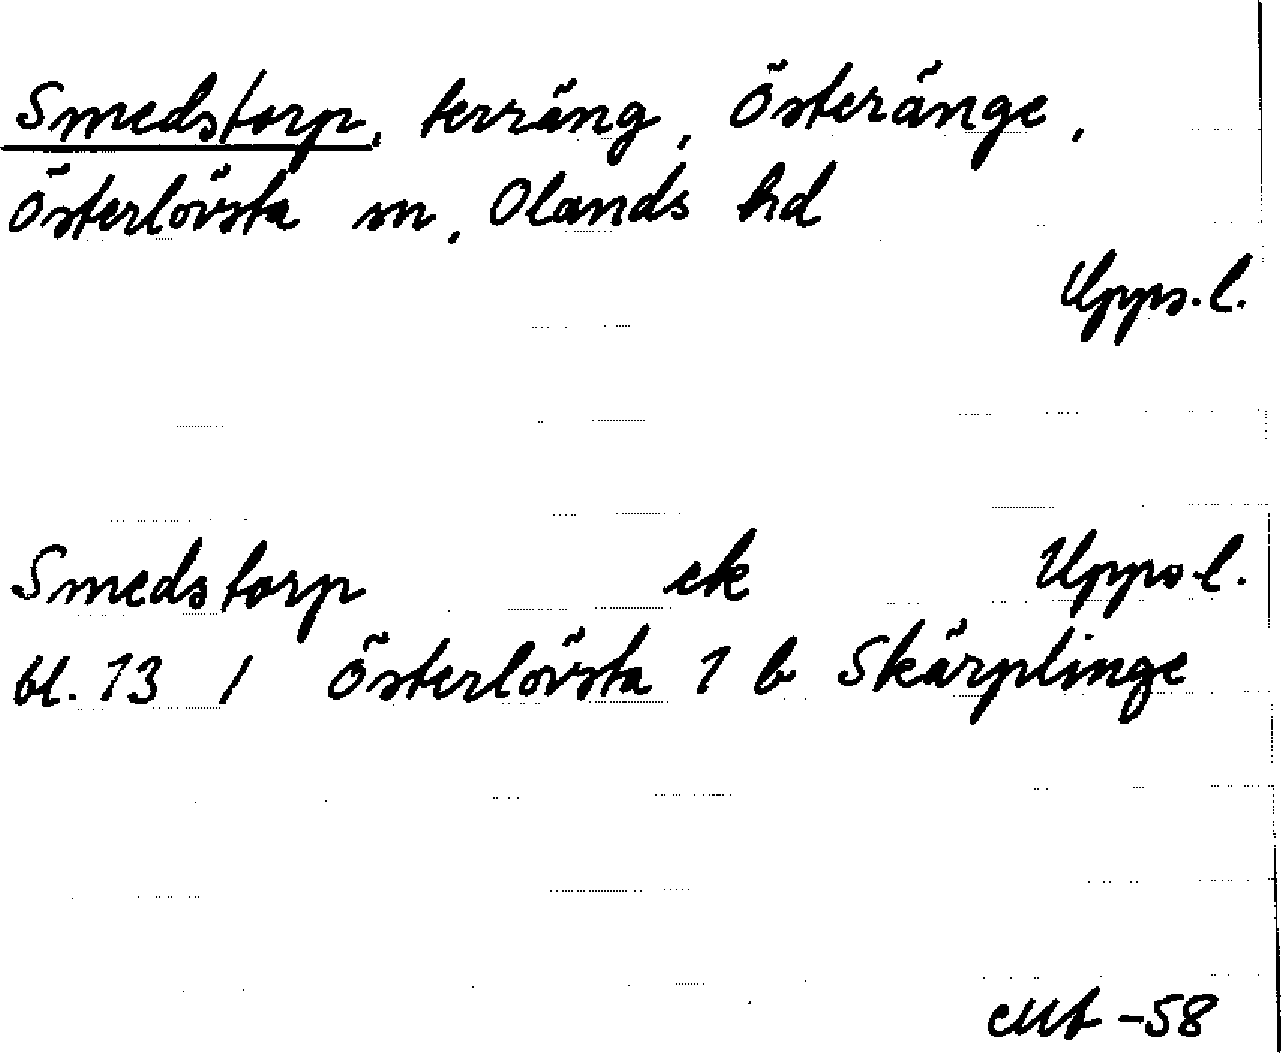 Smedstorp, terräng, Österänge,
Österlövsta sn, Olands hd
Upps.l.
Smedstorp ek Upps.l.
bl. 13 / Österlövsta 1 b Skärplinge
-58